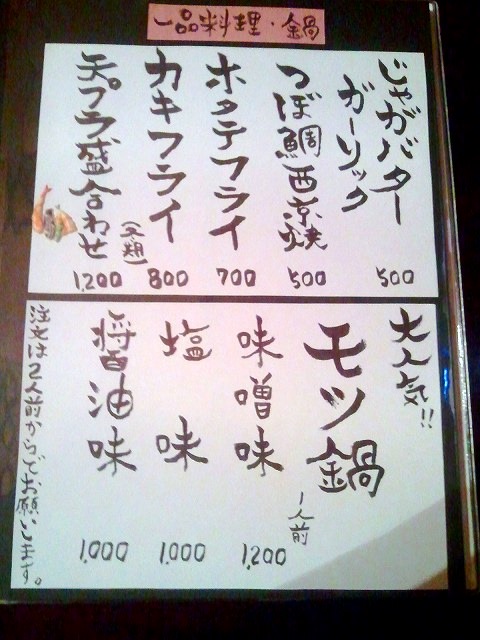 一品料理・鍋
じゃがバター
ガーリック
500
つぼ鯛西京焼
500
ホタテフライ
700
カキフライ
800
天プラ盛合わせ
1,200
大人気!!
モツ鍋
1人前
味噌味
1,200
塩味
1,000
醤油味
1,000
注文は2人前からでお願いします。